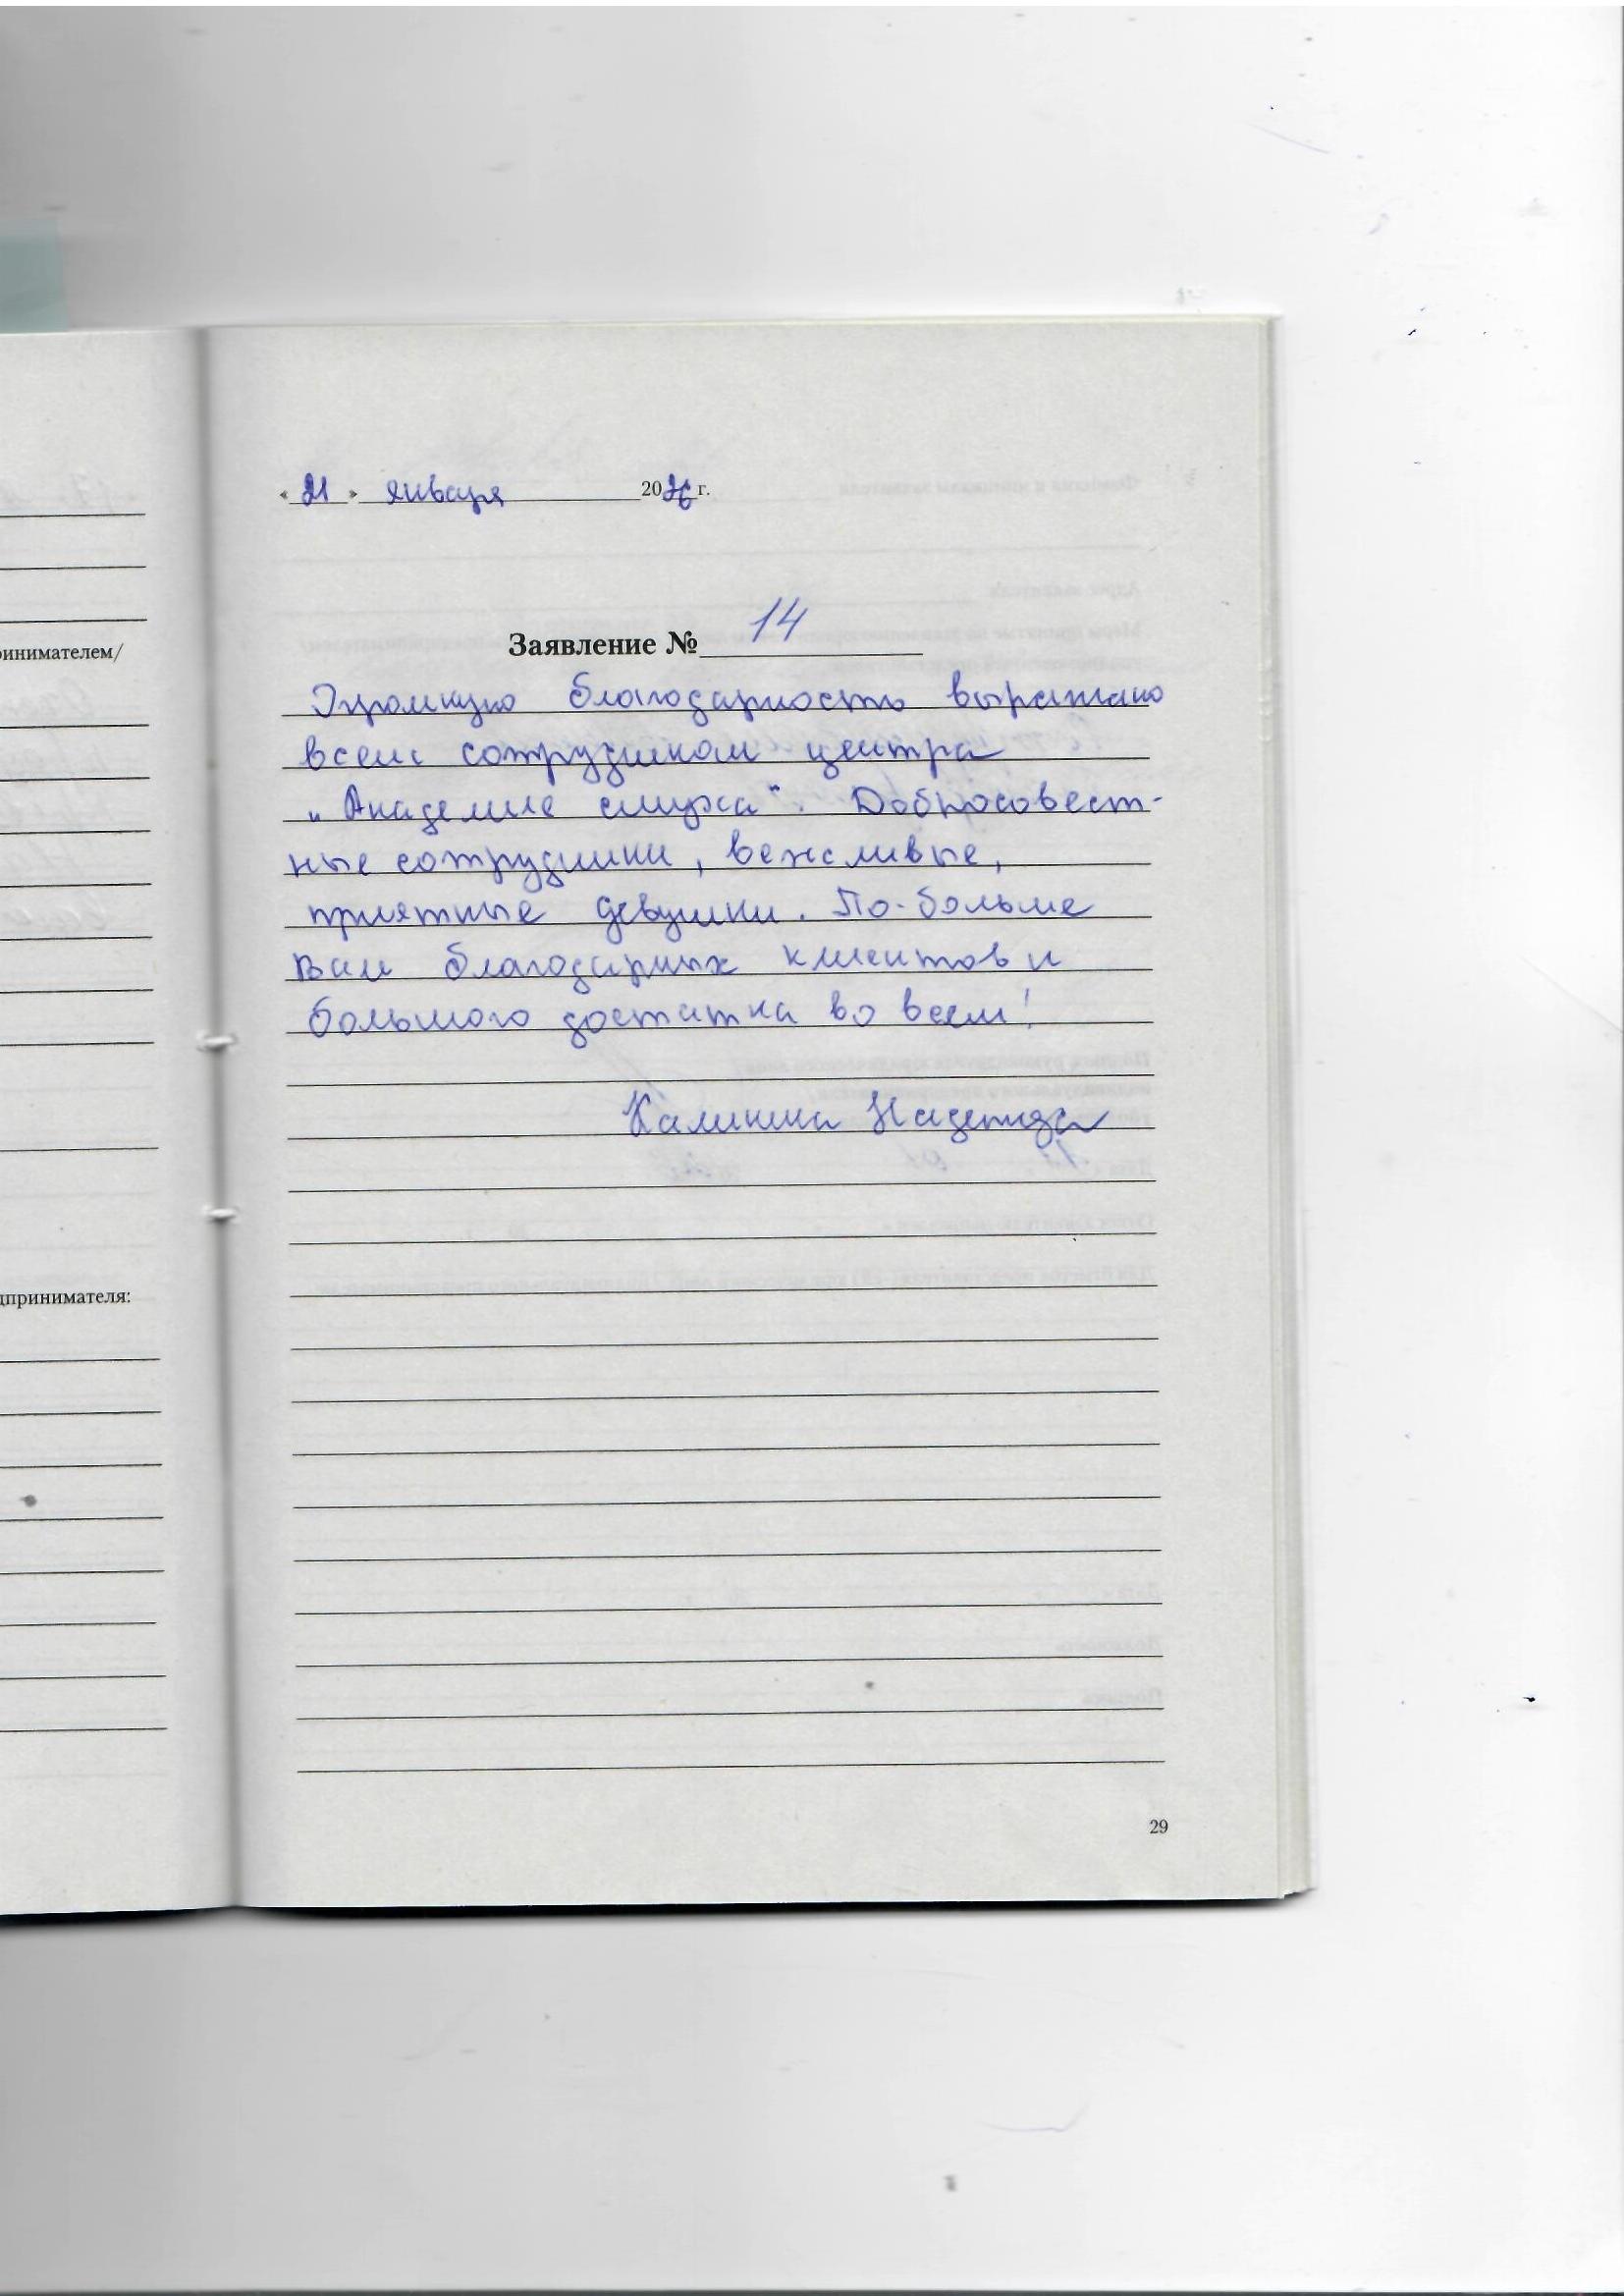 « 21 » января 2026 г.
Заявление № 14
Огромную благодарность выражаю
всем сотрудникам центра
„Академие слуха". Добросовест-
ные сотрудники, вежливые,
приятные девушки. По-больше
Вам благодарных клиентов и
большого достатка во всем!
Калинина Надежда
29
ринимателем/
дпринимателя: